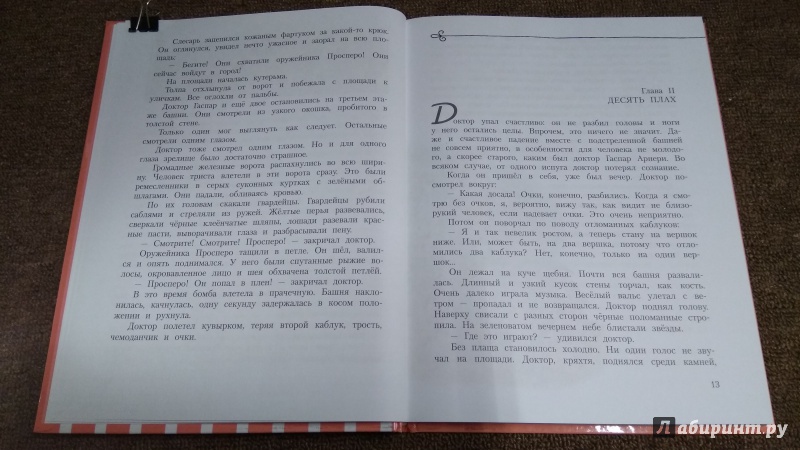 Слесарь зацепился кожаным фартуком за какой-то крюк.
Он оглянулся, увидел нечто ужасное и заорал на всю пло-
щадь:
— Бегите! Они схватили оружейника Просперо! Они
сейчас войдут в город!
На площади началась кутерьма.
Толпа отхлынула от ворот и побежала с площади к
уличкам. Все оглохли от пальбы.
Доктор Гаспар и ещё двое остановились на третьем эта-
же башни. Они смотрели из узкого окошка, пробитого в
толстой стене.
Только один мог выглянуть как следует. Остальные
смотрели одним глазом.
Доктор тоже смотрел одним глазом. Но и для одного
глаза зрелище было достаточно страшное.
Громадные железные ворота распахнулись во всю шири-
ну. Человек триста влетели в эти ворота сразу. Это были
ремесленники в серых суконных куртках с зелёными об-
шлагами. Они падали, обливаясь кровью.
По их головам скакали гвардейцы. Гвардейцы рубили
саблями и стреляли из ружей. Жёлтые перья развевались,
сверкали чёрные клеёнчатые шляпы, лошади разевали крас-
ные пасти, выворачивали глаза и разбрасывали пену.
— Смотрите! Смотрите! Просперо! — закричал доктор.
Оружейника Просперо тащили в петле. Он шёл, валил-
ся и опять поднимался. У него были спутанные рыжие во-
лосы, окровавленное лицо и шея обхвачена толстой петлёй.
— Просперо! Он попал в плен! — закричал доктор.
В это время бомба влетела в прачечную. Башня накло-
нилась, качнулась, одну секунду задержалась в косом поло-
жении и рухнула.
Доктор полетел кувырком, теряя второй каблук, трость,
чемоданчик и очки.
Глава II
ДЕСЯТЬ ПЛАХ
Доктор упал счастливо: он не разбил головы и ноги
у него остались целы. Впрочем, это ничего не значит. Да-
же и счастливое падение вместе с подстреленной башней
не совсем приятно, в особенности для человека не молодо-
го, а скорее старого, каким был доктор Гаспар Арнери. Во
всяком случае, от одного испуга доктор потерял сознание.
Когда он пришёл в себя, уже был вечер. Доктор по-
смотрел вокруг:
— Какая досада! Очки, конечно, разбились. Когда я смо-
трю без очков, я, вероятно, вижу так, как видит не близо-
рукий человек, если надевает очки. Это очень неприятно.
Потом он поворчал по поводу отломанных каблуков:
— Я и так невелик ростом, а теперь стану на вершок
ниже. Или, может быть, на два вершка, потому что отло-
мились два каблука? Нет, конечно, только на один вер-
шок...
Он лежал на куче щебня. Почти вся башня развали-
лась. Длинный и узкий кусок стены торчал, как кость.
Очень далеко играла музыка. Весёлый вальс улетал с ве-
тром — пропадал и не возвращался. Доктор поднял голову.
Наверху свисали с разных сторон чёрные поломанные стро-
пила. На зеленоватом вечернем небе блистали звёзды.
— Где это играют? — удивился доктор.
Без плаща становилось холодно. Ни один голос не зву-
чал на площади. Доктор, кряхтя, поднялся среди камней,
13
Лабиринт.ру